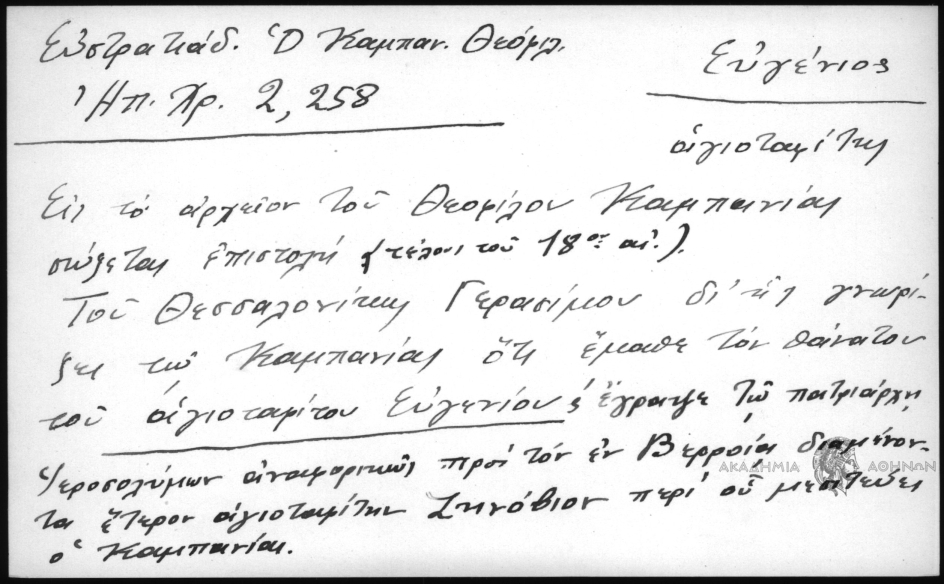 Εὐστρατιάδ. Ὁ Καμπαν. Θεόφιλ.
Ἠπ. Χρ. 2, 258
Εὐγένιος
ἁγιοταφίτης
Εἰς τὸ ἀρχεῖον τοῦ Θεοφίλου Καμπανίας
σώζεται ἐπιστολή (τέλους τοῦ 18ου αἰ.).
Τοῦ Θεσσαλονίκης Γερασίμου δι' ἧς γνωρί-
ζει τῷ Καμπανίας ὅτι ἔμαθε τὸν θάνατον
τοῦ ἁγιοταφίτου Εὐγενίου ἔγραψε τῷ πατριάρχῃ
Ἱεροσολύμων ἀναφορικῶς πρὸς τὸν ἐν Βερροίᾳ διαμένον-
τα ἕτερον ἁγιοταφίτην Ζηνόβιον περὶ οὗ μεσιτεύει
ὁ Καμπανίας.
ΑΚΑΔΗΜΙΑ ΑΘΗΝΩΝ